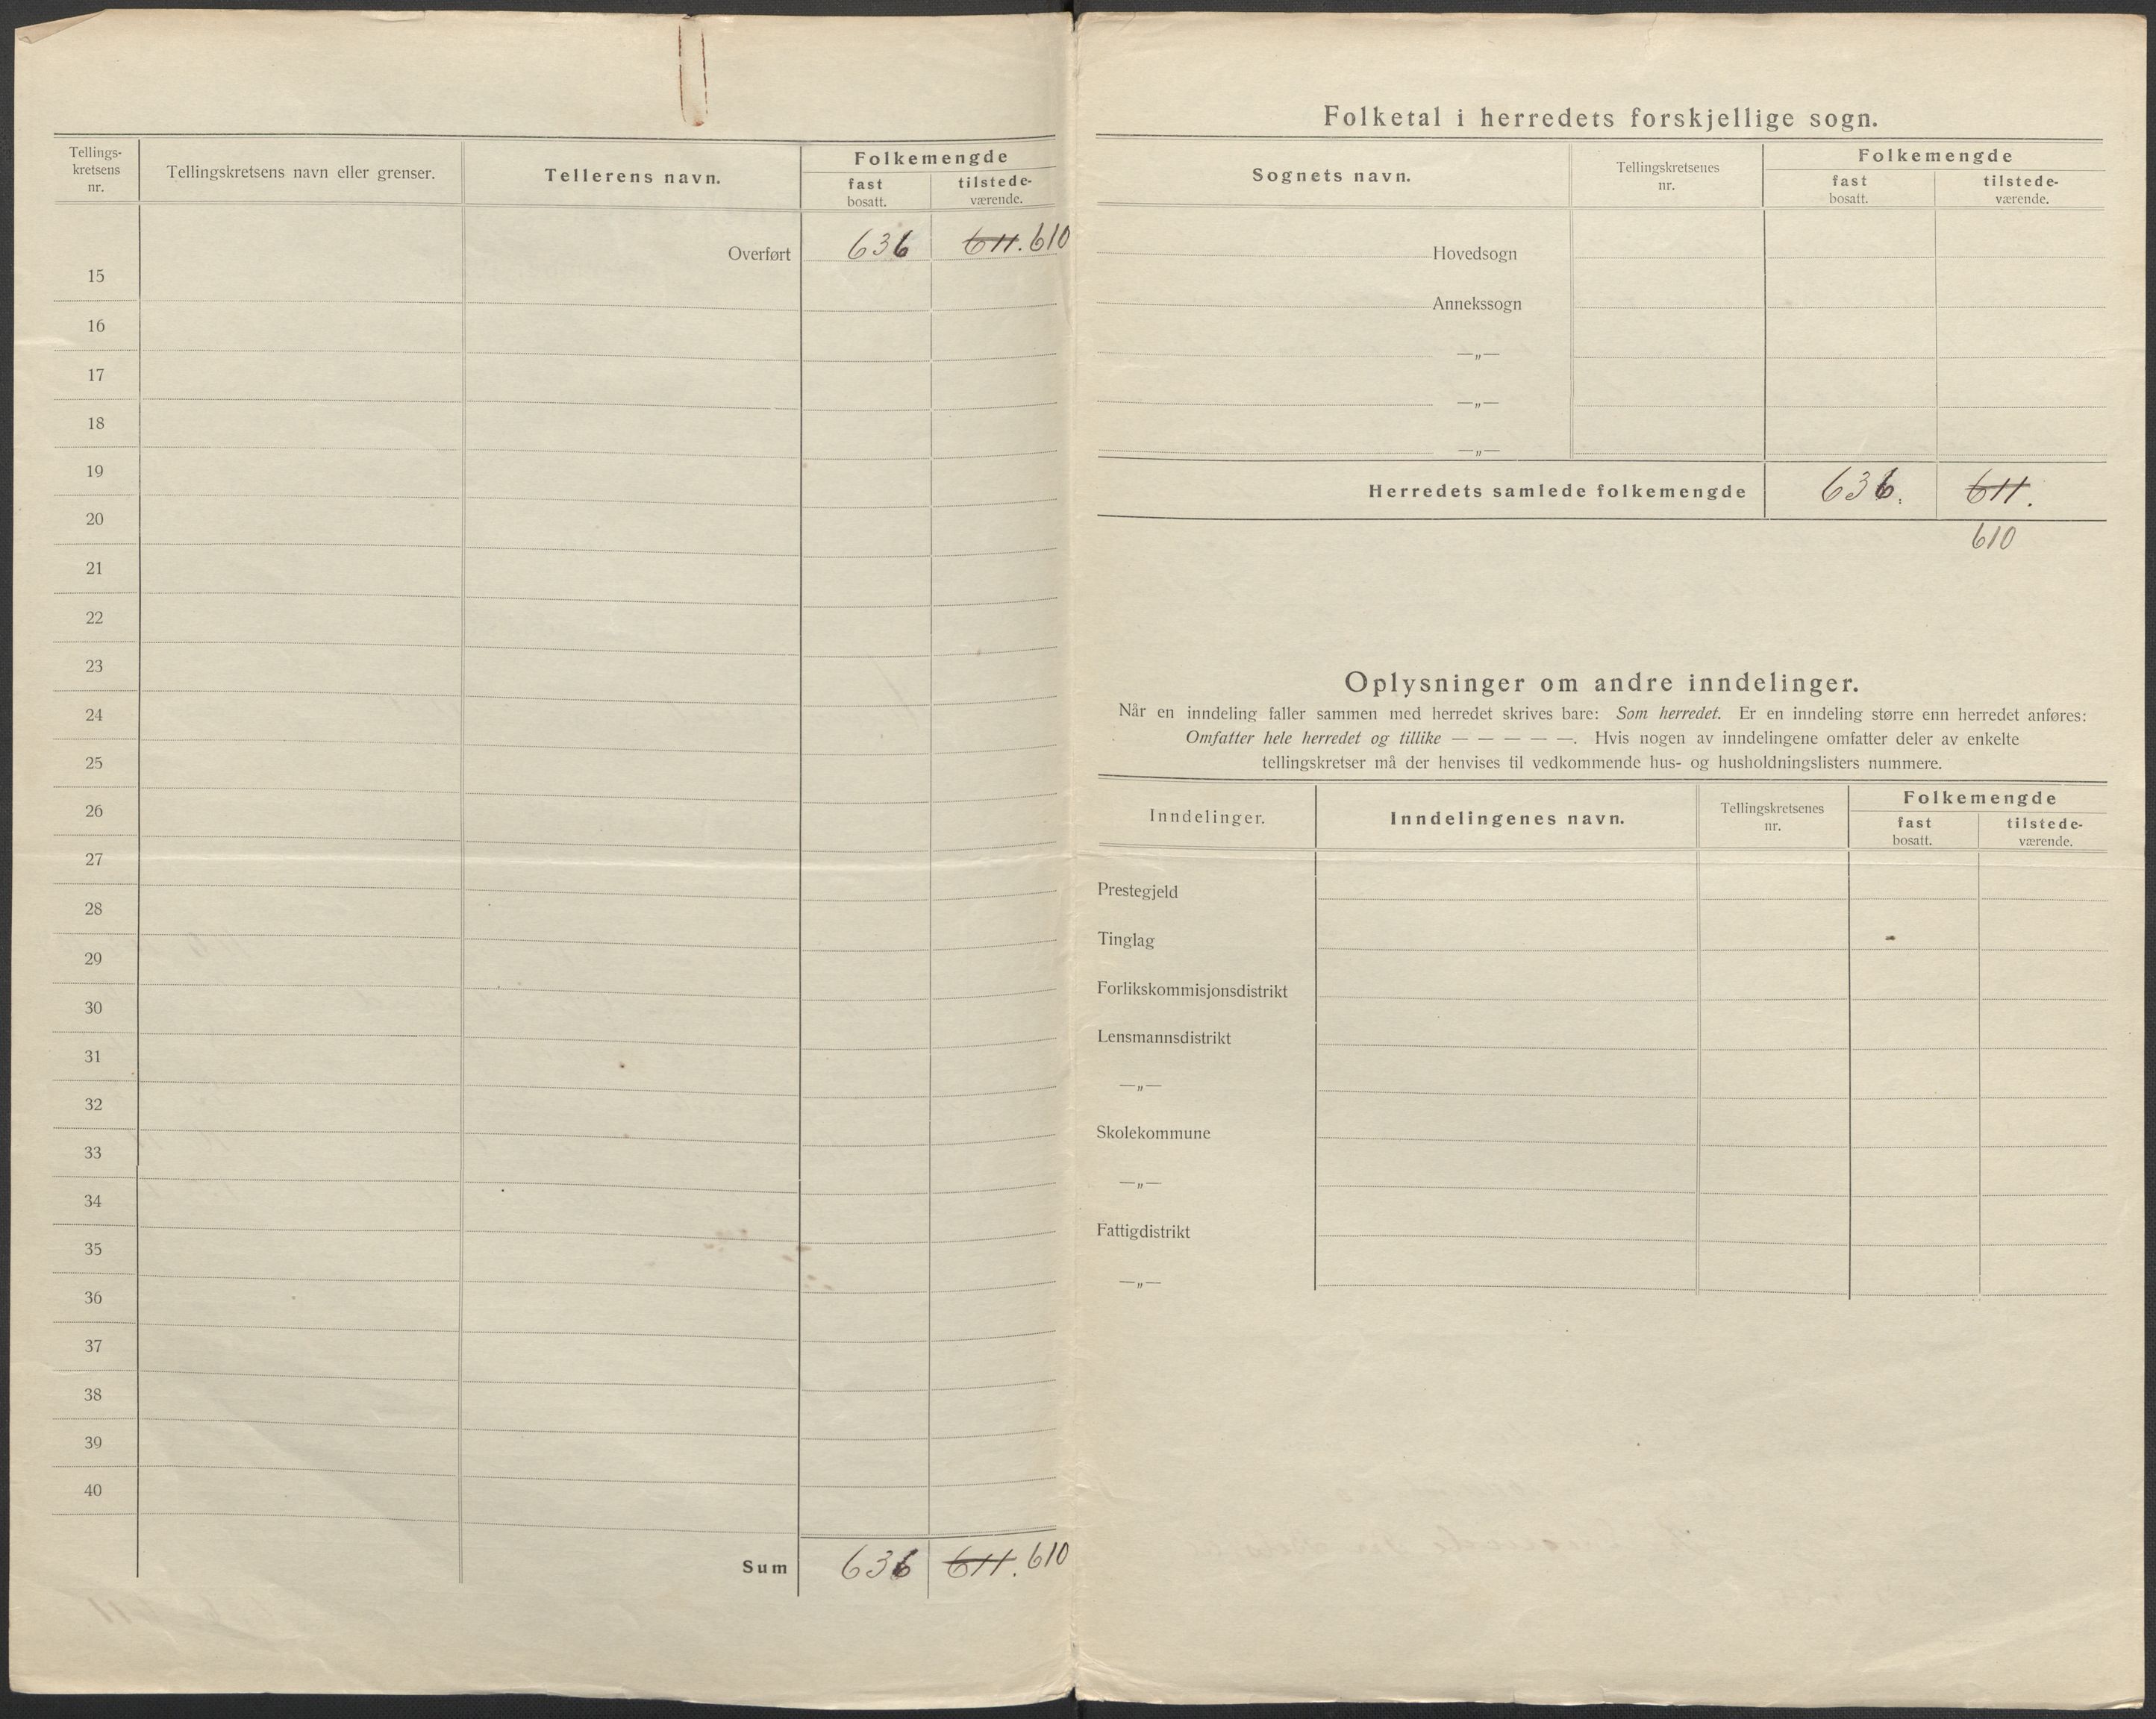 Tellings-
kretsens
nr.
Tellingskretsens navn eller grenser.
Tellerens navn.
Folkemengde
fast
bosatt.
tilstede-
værende.
Overført 636 611. 610
15
16
17
18
19
20
21
22
23
24
25
26
27
28
29
30
31
32
33
34
35
36
37
38
39
40
Sum 636 611. 610
Folketal i herredets forskjellige sogn.
Sognets navn.
Tellingskretsenes
nr.
Folkemengde
fast
bosatt.
tilstede-
værende.
Hovedsogn
Annekssogn
—„—
—„—
—„—
Herredets samlede folkemengde 636. 611.
610
Oplysninger om andre inndelinger.
Når en inndeling faller sammen med herredet skrives bare: Som herredet. Er en inndeling større enn herredet anføres:
Omfatter hele herredet og tillike — — — — —. Hvis nogen av inndelingene omfatter deler av enkelte
tellingskretser må der henvises til vedkommende hus- og husholdningslisters nummere.
Inndelinger.
Inndelingenes navn.
Tellingskretsenes
nr.
Folkemengde
fast
bosatt.
tilstede-
værende.
Prestegjeld
Tinglag
Forlikskommisjonsdistrikt
Lensmannsdistrikt
—„—
Skolekommune
—„—
Fattigdistrikt
—„—